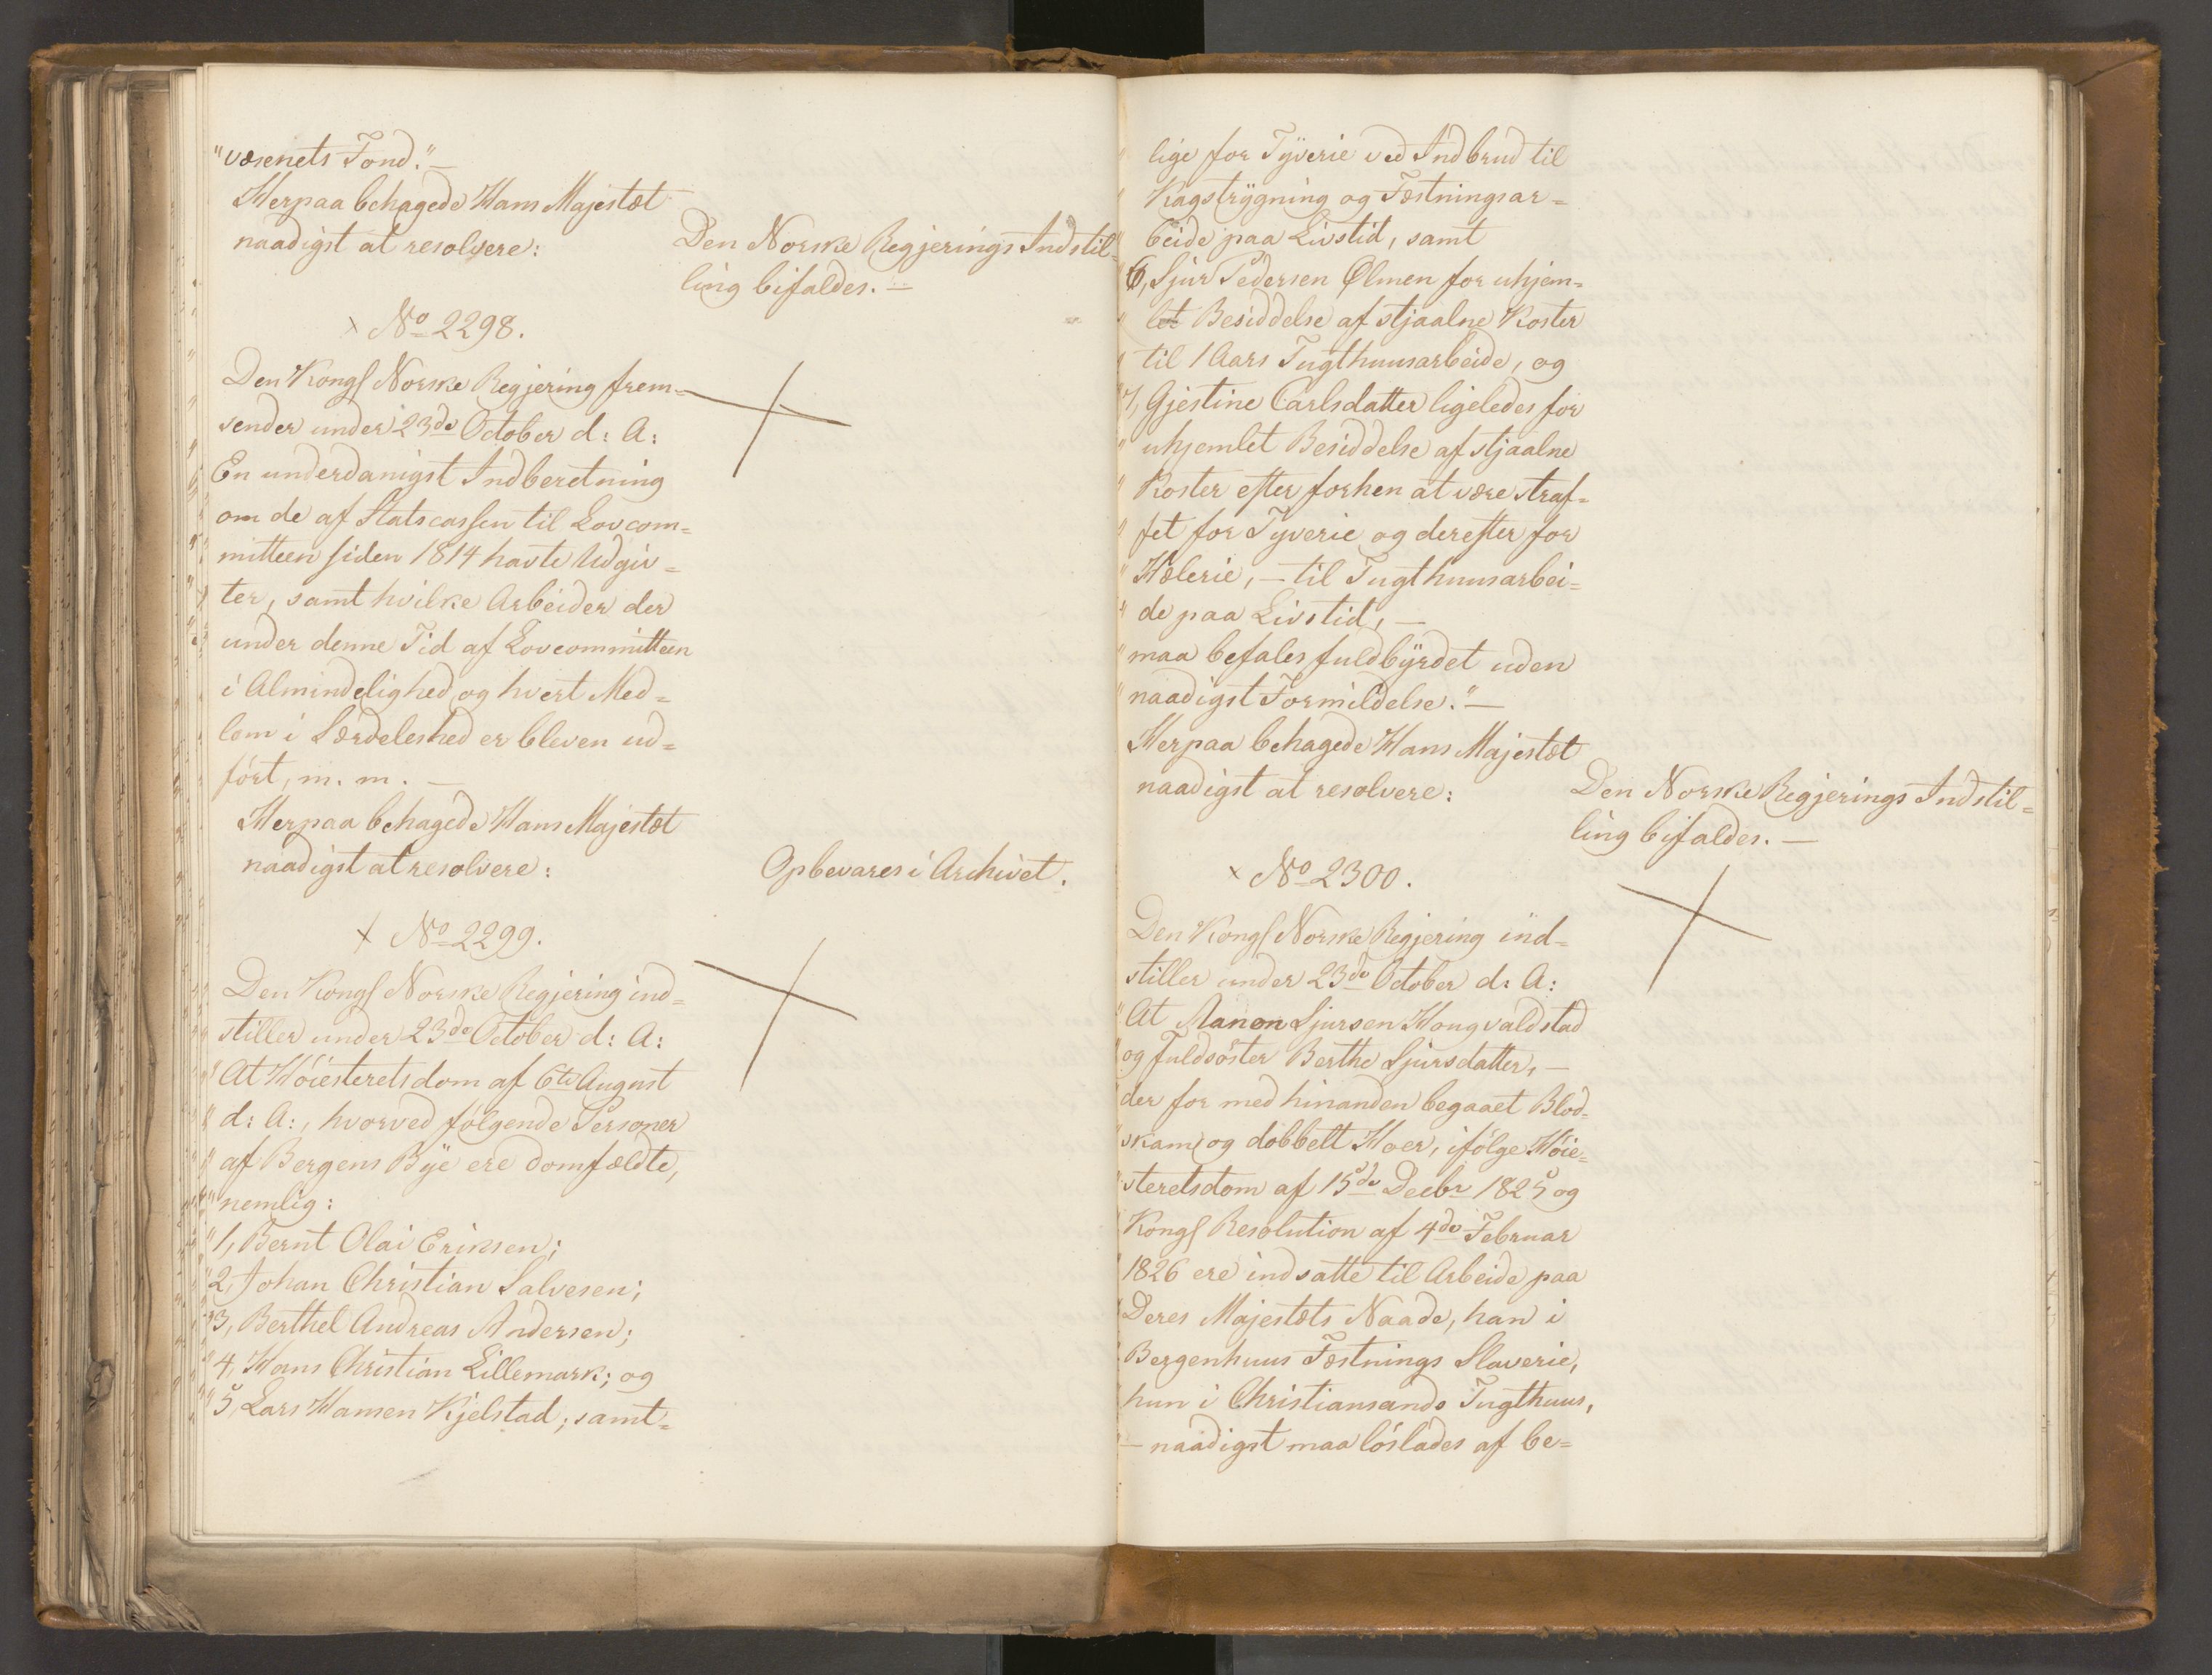 "væsenets Fond."—
Herpaa behagede Hans Majestæt
naadigst at resolvere:
Den Norske Regjerings Indstil=
ling bifaldes.—
× No 2298.
Den Kongl Norske Regjering frem=
sender under 23de October d: A:
En underdanigst Indberetning
om de af Statscassen til Lovcom=
mitteen siden 1814 havte Udgiv=
ter, samt hvilke Arbeider der
under denne Tid af Lovcommitteen
i Almindelighed og hvert Med=
lem i Særdeleshed er bleven ud=
ført, m. m. —
Herpaa behagede Hans Majestæt
naadigst at resolvere:
Opbevares i Archivet.
× No 2299.
Den Kongl Norske Regjering ind=
stiller under 23de October d: A:
"At Høiesteretsdom af 6te August
" d: A:, hvorved følgende Personer
" af Bergens Bye ere domfældte,
" nemlig:
" 1, Bernt Olai Eriksen;
" 2, Johan Christian Salvesen;
" 3, Berthel Andreas Andersen;
" 4, Hans Christian Lillemark; og
" 5, Lars Hansen Kjelstad; samt=
" lige for Tyverie ved Indbrud til
" Kagstrygning og Fæstningsar=
" beide paa Livstid, samt
" 6, Sjur Pedersen Ølmen for uhjem=
" let Besiddelse af stjaalne Koster
" til 1 Aars Tugthuusarbeide, og
" 7, Gjestine Carlsdatter ligeledes for
" uhjemlet Besiddelse af stjaalne
" Koster efter forhen at være straf=
" fet for Tyverie og derefter for
" Hælerie, — til Tugthuusarbei=
" de paa Livstid, —
" maa befales fuldbyrdet uden
" naadigst Formildelse."—
Herpaa behagede Hans Majestæt
naadigst at resolvere:
Den Norske Regjerings Indstil=
ling bifaldes.—
× No 2300.
Den Kongl Norske Regjering ind=
stiller under 23de October d: A:
"At Manon Sjursen Hougvaldstad
" og Fuldsøster Berthe Sjursdatter, —
" der for med hinanden begaaet Blod=
" skam og dobbelt Hoer, ifølge Høie=
" steretsdom af 15de Decbr 1825 og
" Kongl Resolution af 4de Februar
" 1826 ere indsatte til Arbeide paa
" Deres Majestæts Naade, han i
" Bergenhuus Fæstnings Slaverie,
" hun i Christiansands Tugthuus,
" — naadigst maa løslades af be=